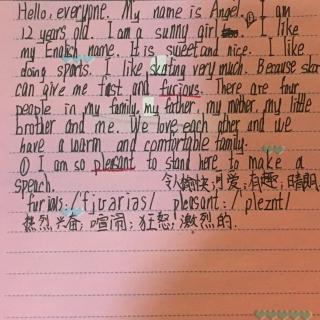 Hello, everyone. My name is Angel. ① I am
12 years old. I am a sunny girl. I like
my English name. It is sweet and nice. I like
doing sports. I like skating very much. Because skat
can give me fast and furious. There are four
people in my family, my father, my mother, my little
brother and me. We love each other and we
have a warm and comfortable family.
① I am so pleasant to stand here to make a
speach. 令人愉快;可爱;有趣;晴朗
furious:/'fjʊəriəs/ pleasant:/'pleznt/
热烈兴奋;喧闹;狂怒;激烈的.